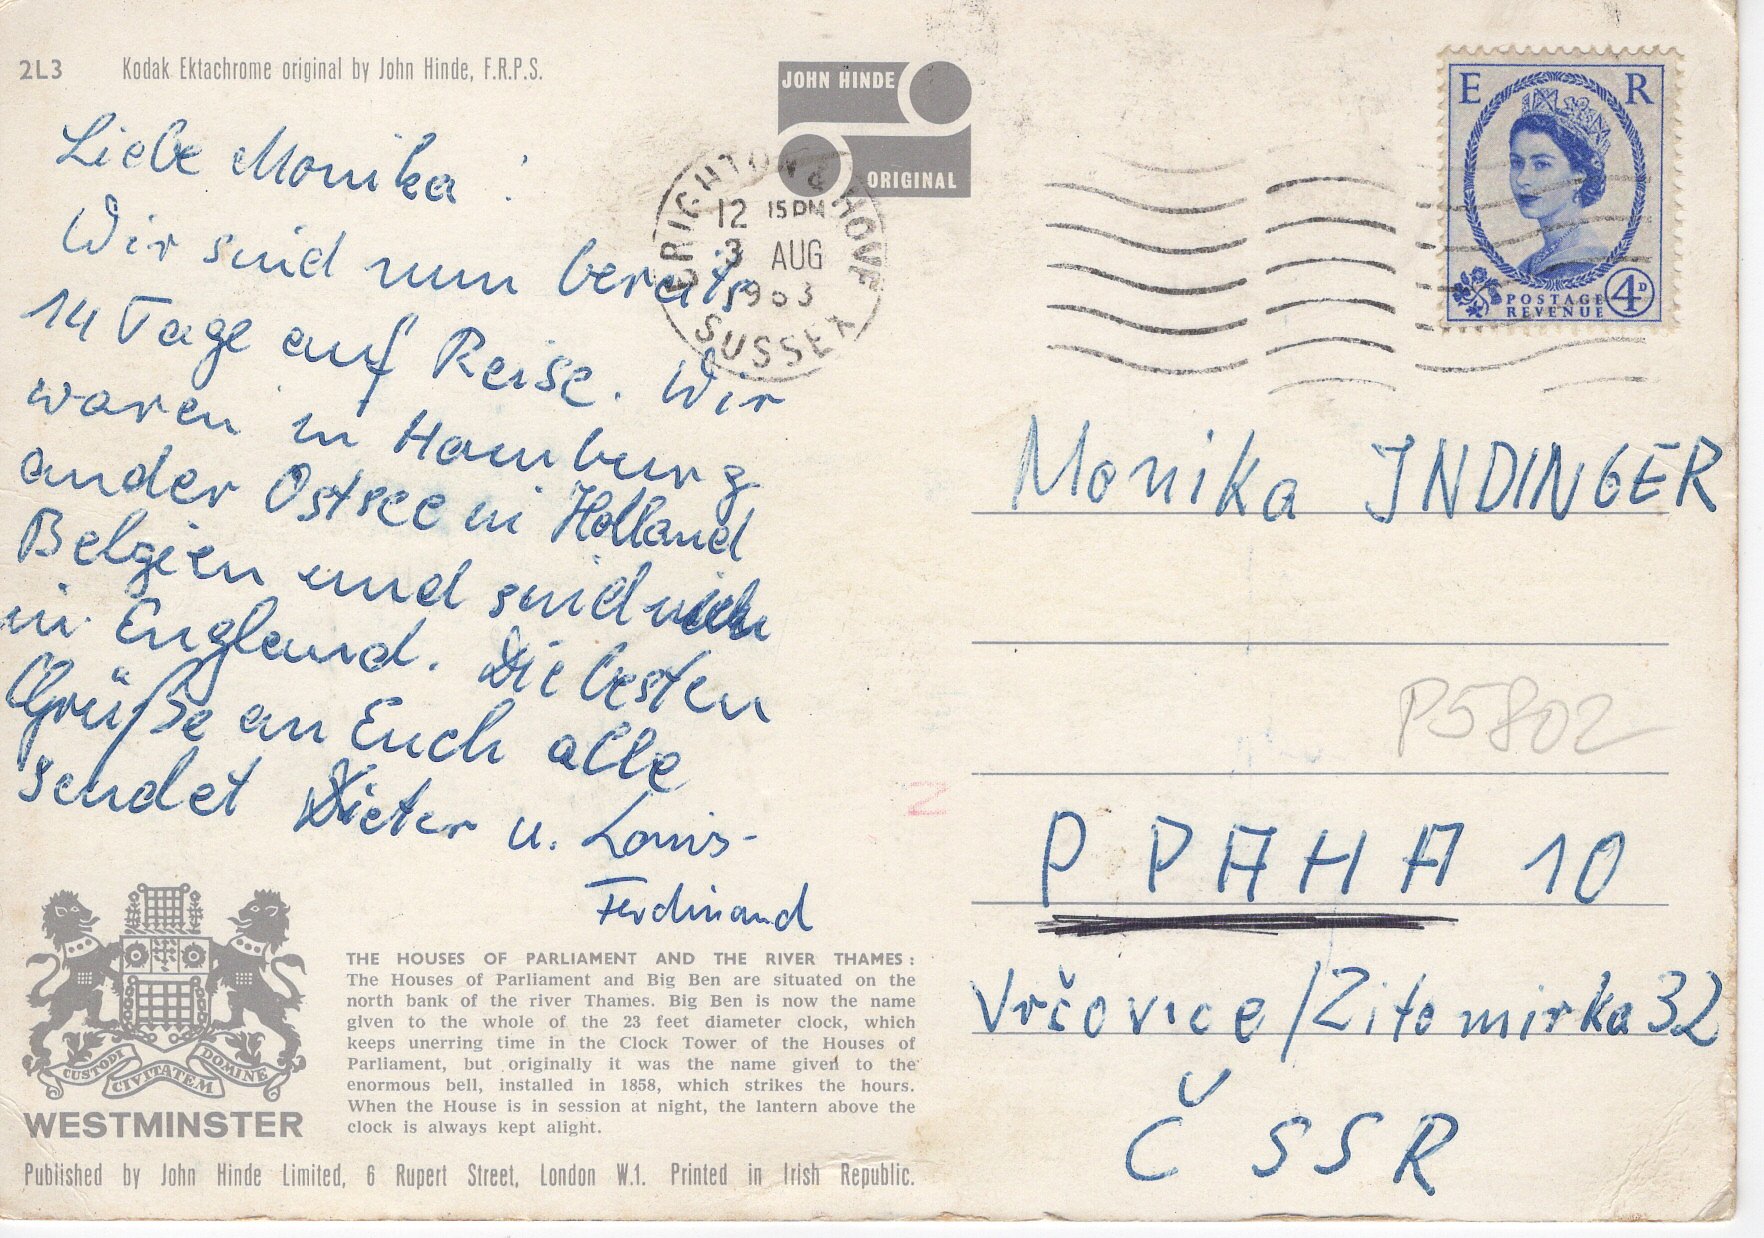 2L3 Kodak Ektachrome original by John Hinde, F.R.P.S.
JOHN HINDE
ORIGINAL
Liebe Monika!
Wir sind nun bereits
14 Tage auf Reise. Wir
waren in Hamburg
an der Ostsee in Holland
Belgien und sind
in England. Die besten
Grüße an Euch alle
sendet Dieter u. Louis-
Ferdinand
BRIGHTON & HOVE
12 15 PM
3 AUG
1963
SUSSEX
E R
POSTAGE
REVENUE
4D
Monika INDINGER
P5802
P PAHA 10
Vršovice/Zitomirka 32
Č SSR
CUSTODI CIVITATEM DOMINE
WESTMINSTER
THE HOUSES OF PARLIAMENT AND THE RIVER THAMES:
The Houses of Parliament and Big Ben are situated on the
north bank of the river Thames. Big Ben is now the name
given to the whole of the 23 feet diameter clock, which
keeps unerring time in the Clock Tower of the Houses of
Parliament, but originally it was the name given to the
enormous bell, installed in 1858, which strikes the hours.
When the House is in session at night, the lantern above the
clock is always kept alight.
Published by John Hinde Limited, 6 Rupert Street, London W.1. Printed in Irish Republic.